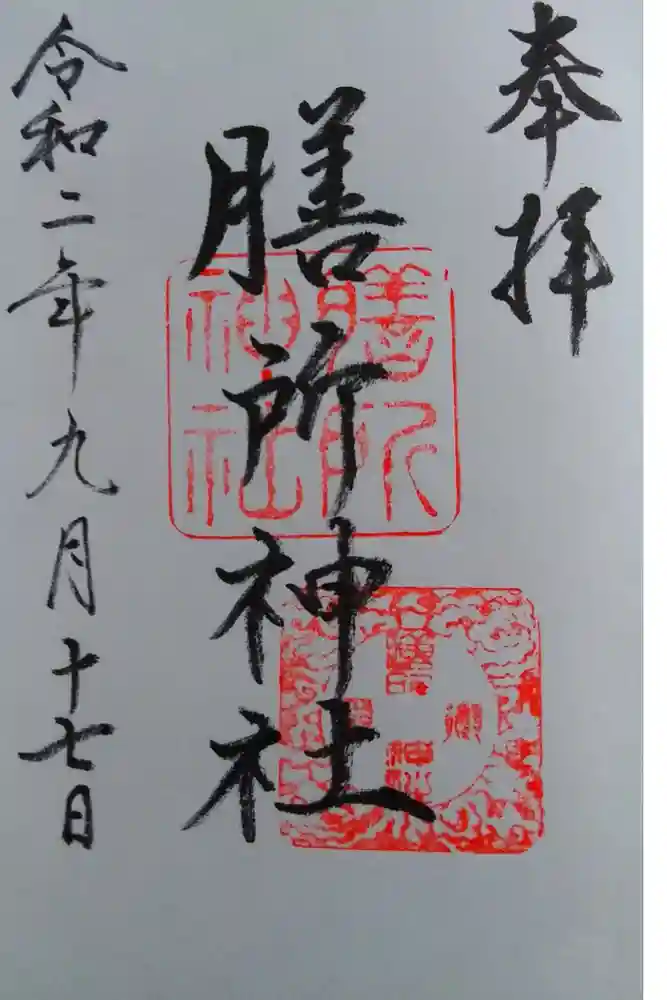 奉拝
膳所神社
令和二年九月十七日
膳所
神社